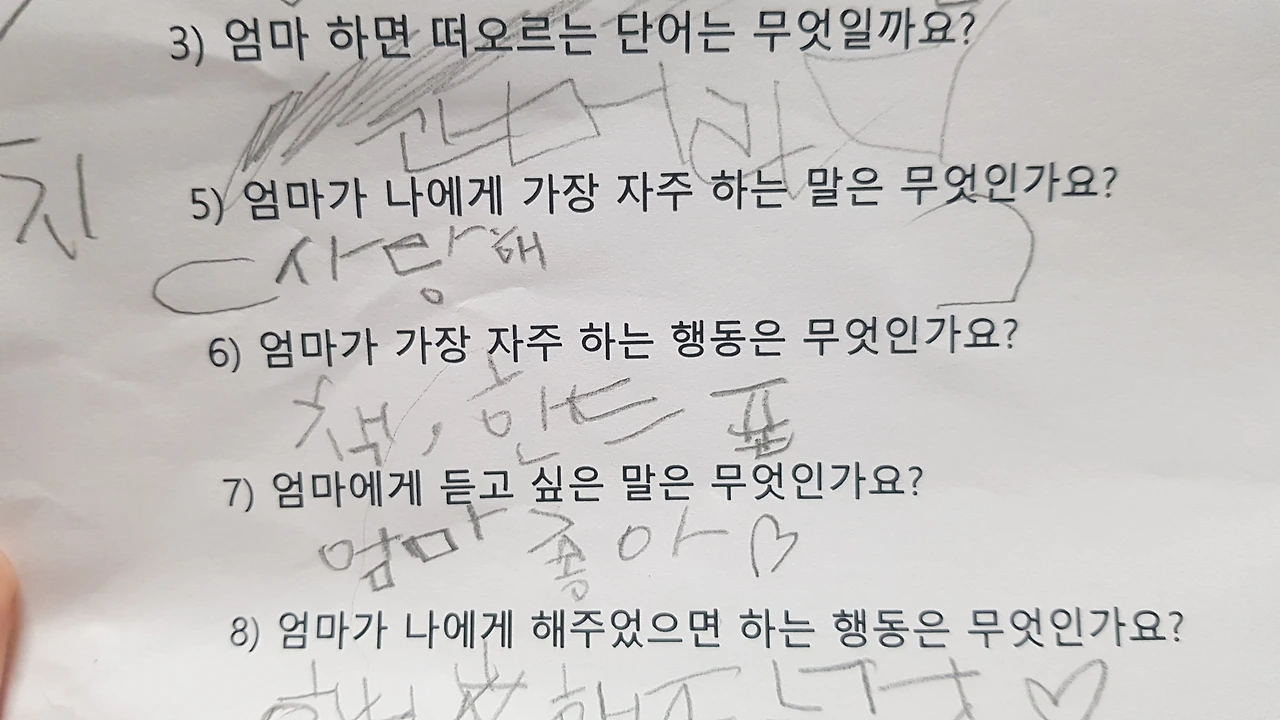 3) 엄마 하면 떠오르는 단어는 무엇일까요?
지
5) 엄마가 나에게 가장 자주 하는 말은 무엇인가요?
사랑해
6) 엄마가 가장 자주 하는 행동은 무엇인가요?
책, 핸드폰
7) 엄마에게 듣고 싶은 말은 무엇인가요?
엄마 좋아♡
8) 엄마가 나에게 해주었으면 하는 행동은 무엇인가요?